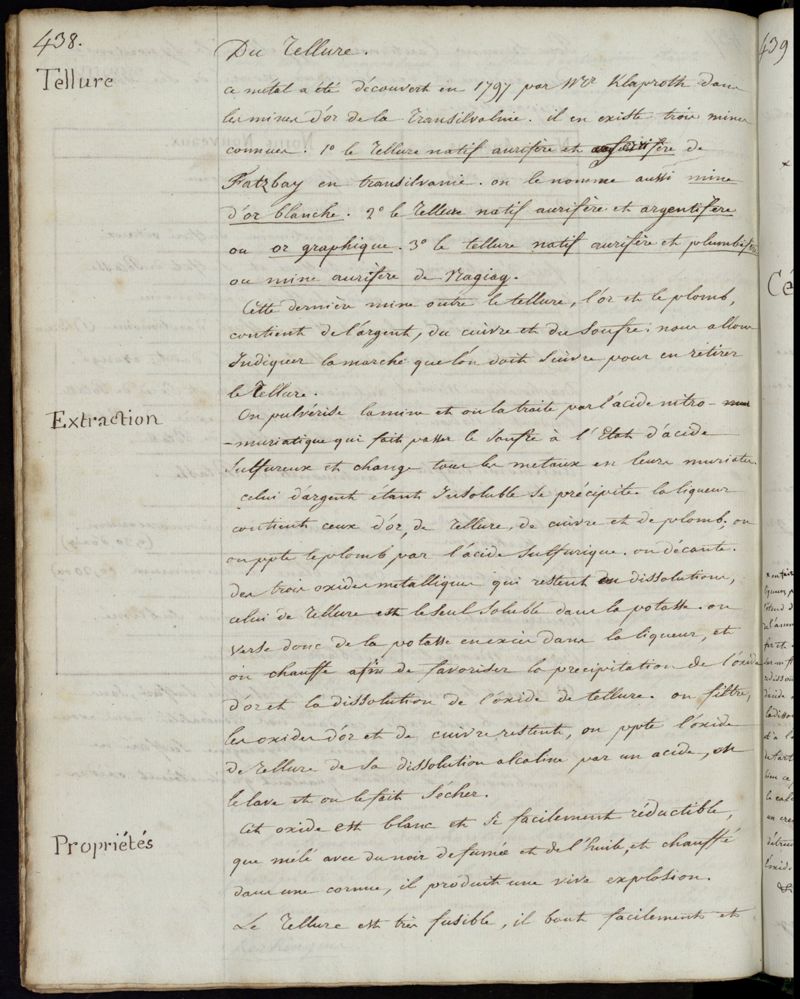 438.
Tellure
Du Tellure.
ce métal a été découvert en 1797 par Mr. Klaproth dans
les mines d'or de la Transilvalnie. il en existe trois mines
connues. 1° le Tellure natif aurifère et de
Fatzbay en transilvanie. on le nomme aussi mine
d'or blanche. 2° le Tellure natif aurifère et argentifère
ou or graphique. 3° le tellure natif aurifère et plumbifère
ou mine aurifère de Nagiag.
Cette dernière mine outre le tellure, l'or et le plomb,
contient de l'argent, du cuivre et du Soufre. nous allons
Indiquer la marche que l'on doit Suivre pour en retirer
le Tellure.
Extraction
On pulvérise la mine et on la traite par l'acide nitro-
-muriatique qui fait passer le Soufre à l'Etat d'acide
Sulfureux et change tous les metaux en leurs muriates.
celui d'argent étant Insoluble Se précipite. la liqueur
contient ceux d'or, de Tellure, de cuivre et de plomb; on
en ppte le plomb par l'acide Sulfurique. on décante.
des trois oxides metalliques qui restent en dissolutions,
celui de Tellure est le Seul Soluble dans la potasse. on
verse donc de la potasse en excès dans la liqueur, et
on chauffe afin de favoriser la precipitation de l'oxide
d'or et la dissolution de l'oxide de tellure. on filtre,
les oxides d'or et de cuivre restent, on ppte l'oxide
de Tellure de Sa dissolution alcaline par un acide, on
le lave et on le fait Sécher.
Propriétés
Cet oxide est blanc et Si facilement réductible,
que mêlé avec du noir de fumée et de l'huile, et chauffé
dans une cornue, il produit une vive explosion.
Le Tellure est très fusible, il bout facilement et
439
Cé